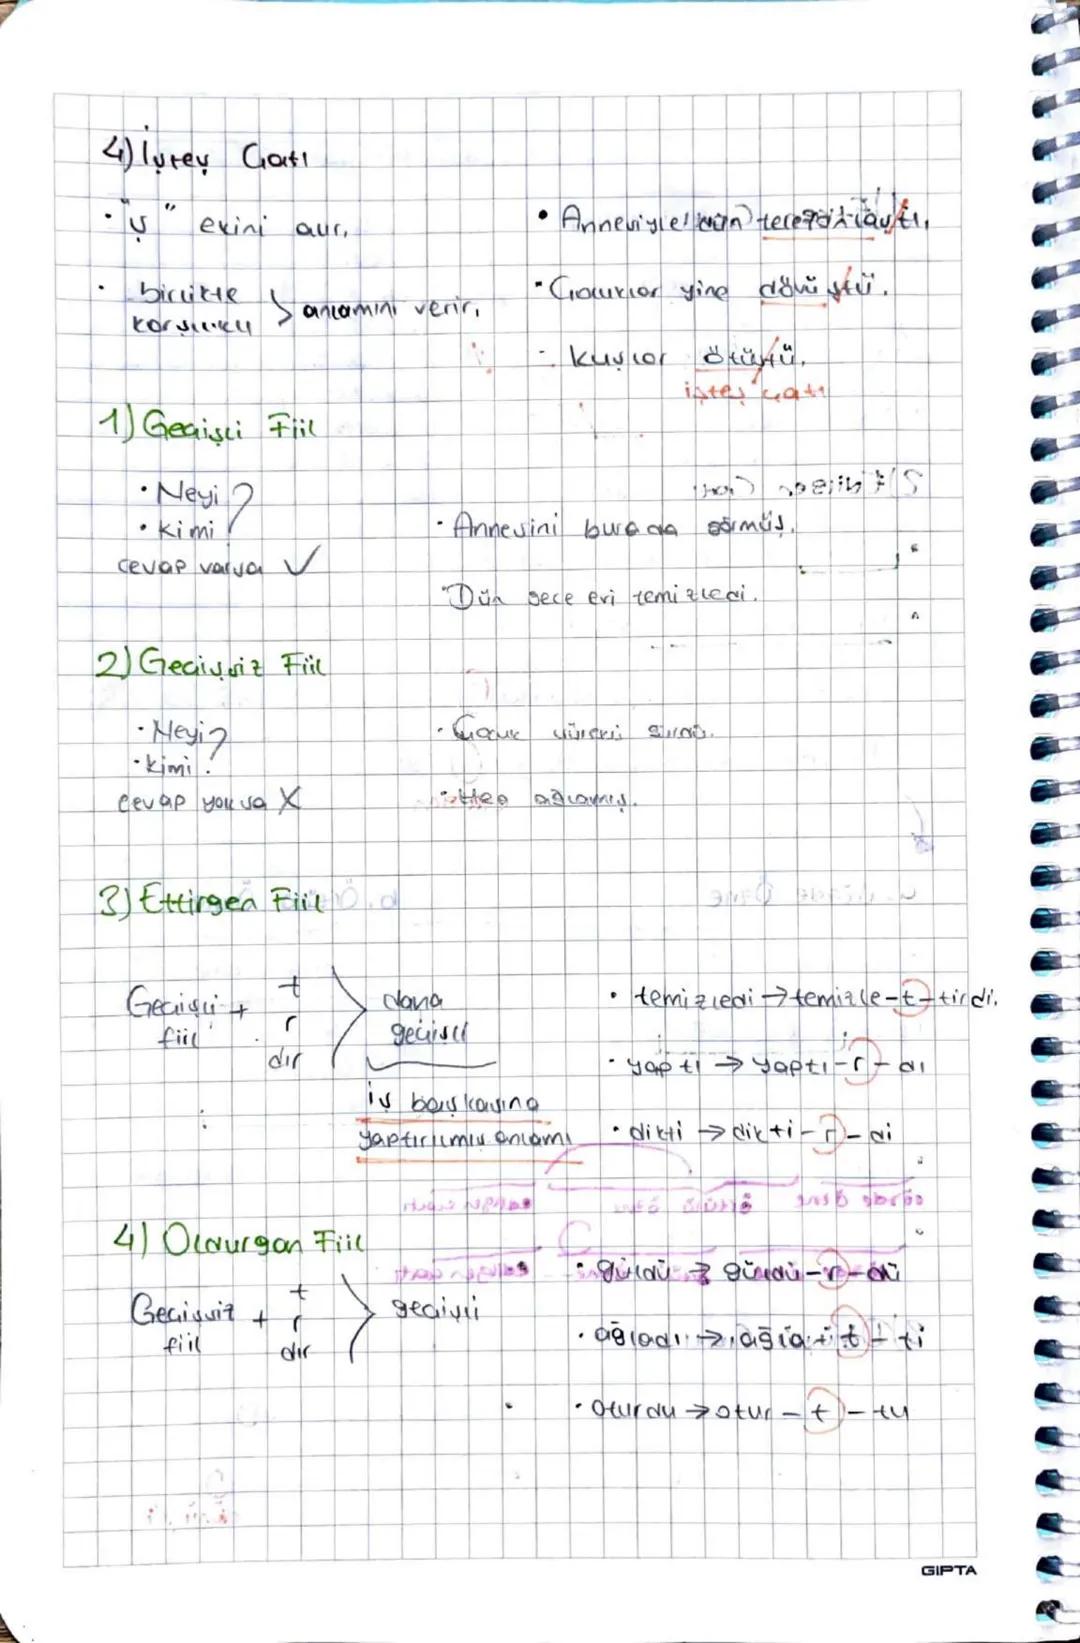 4) İşteş Çatı
• "ş" ekini alır.
• birlikte
karşılıklı > anlamını verir.
• Annesiyle dün telefonlaştı.
• Çocuklar yine dövüştü.
- Kuşlar ötüştü.
işteş çatı
1) Geçişli Fiil
• Neyi ?
• Kimi
cevap varsa ✓
• Annesini burada görmüş.
• Dün gece evi temizledi.
2) Geçişsiz Fiil
• Neyi ?
• kimi
cevap yoksa X
• Çocuk güldü.
• ağlamış.
3) Ettirgen Fiil
Geçişli + fiil
t
r
dır
daha
geçişli
iş başkasına
yaptırılmış anlamı
• temizledi → temizle-t-tirdi.
• yaptı → yaptı-r-dı
• dikti → dikti-r-di
4) Oldurgan Fiil
Geçişsiz + fiil
t
r
dır
geçişli
• güldü → güldü-r-dü
• ağladı → ağla-t-tı
• oturdu → otur-t-tu
GIPTA